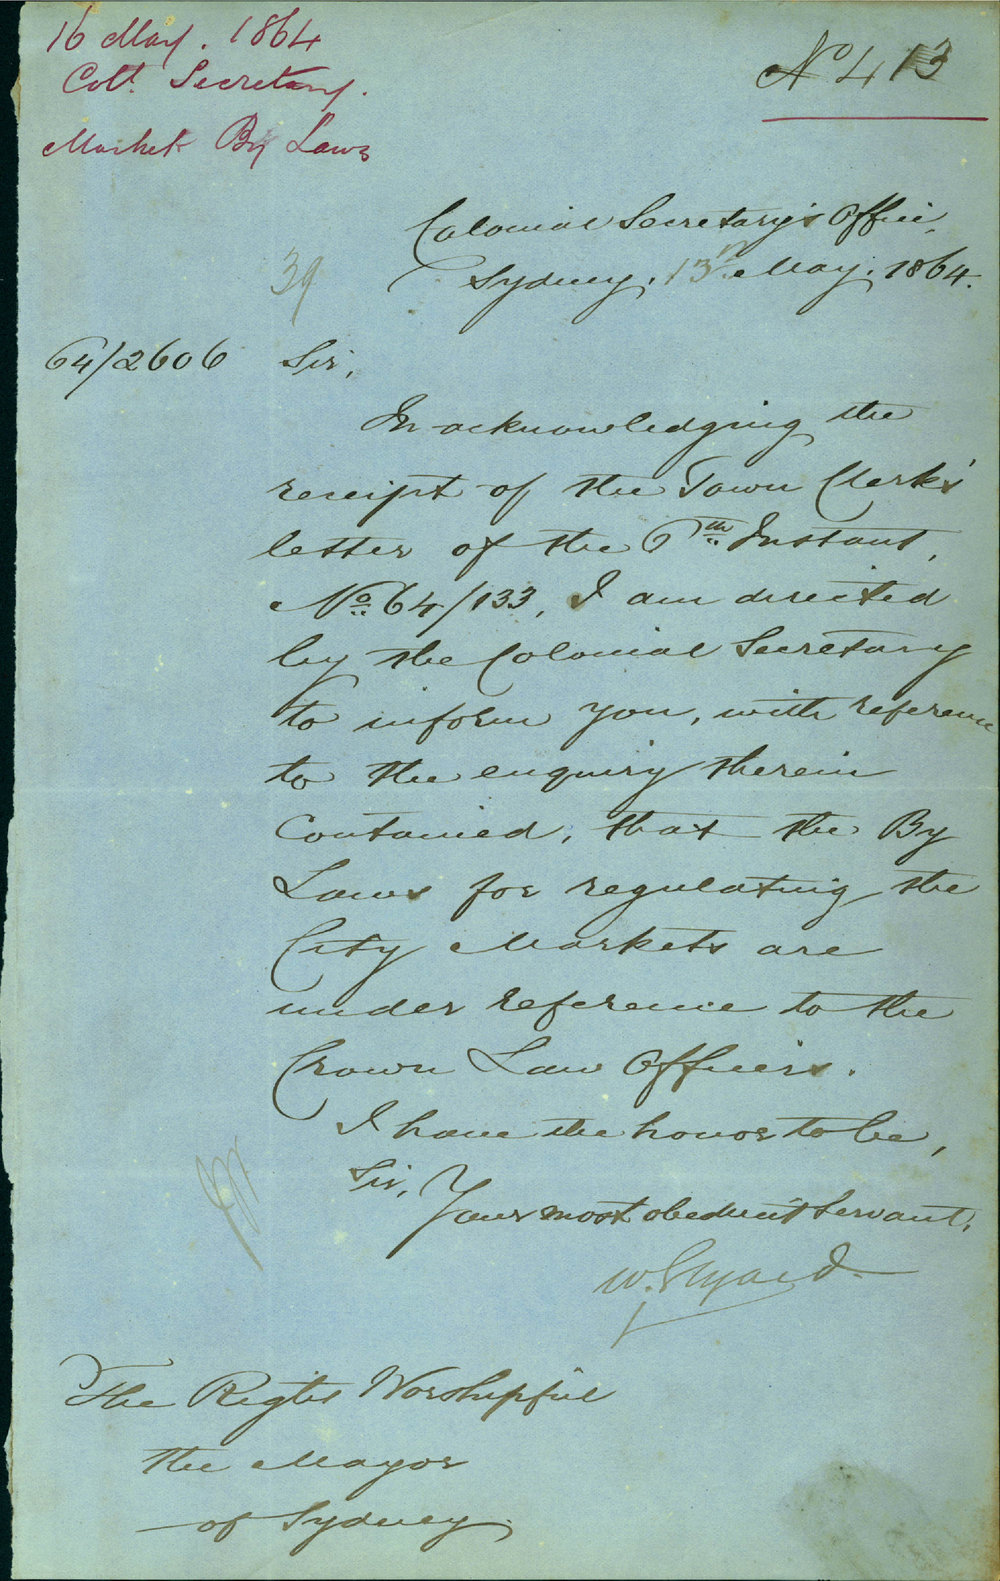 16 May. 1864
Coll. Secretary.
Market By Laws
No 413
Colonial Secretary's Office,
Sydney, 13th May, 1864.
39
64/2606
Sir,
In acknowledging the
receipt of the Town Clerk's
letter of the 6th Instant,
No. 64/133, I am directed
by the Colonial Secretary
to inform you, with reference
to the enquiry therein
Contained, that the By
Laws for regulating the
City Markets are
under reference to the
Crown Law Officers.
I have the honor to be,
Sir,
Your most obedient Servant,
W. Elyard
The Right Worshipful
the Mayor
of Sydney